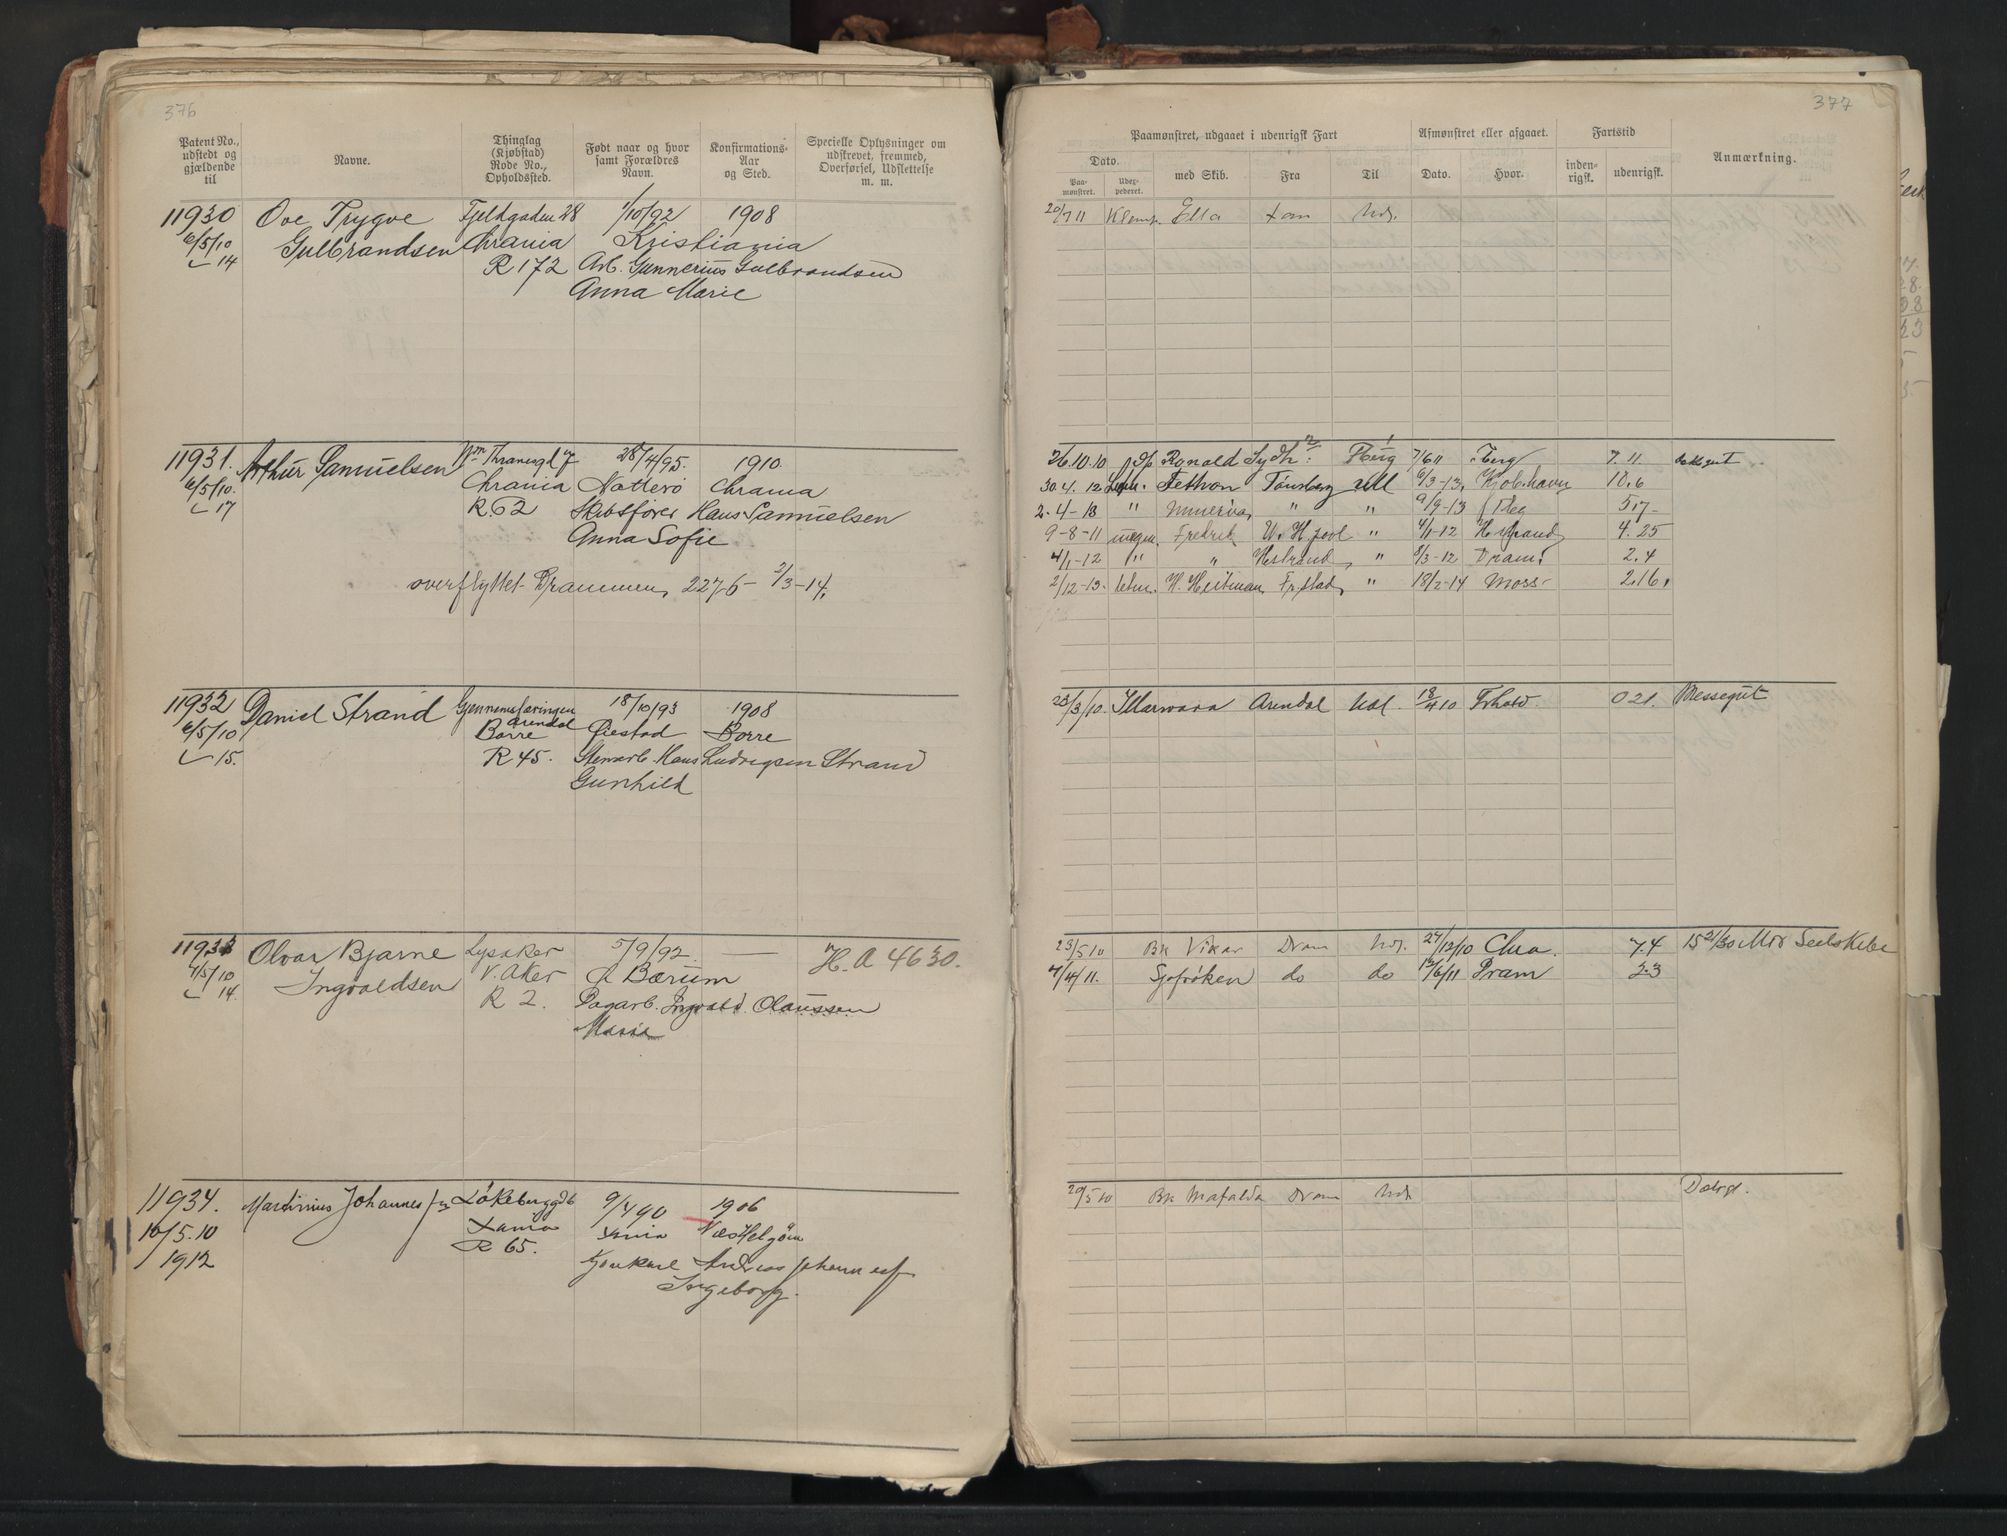 376
Patent No., udstedt og gjældende til
Navne.
Thinglag (Kjøbstad) Rode No., Opholdssted.
Født naar og hvor samt Forældres Navn.
Konfirmations-Aar og Sted.
Specielle Oplysninger om udskrevet, fremmed, Overførsel, Udslettelse m. m.
11930 Ove Trygve Fjeldgaden 28 1/10/92 1908
6/5/10 Gulbrandsen Chrania Kristiania
14 R 172 Arb. Gunnerius Gulbrandsen
Anna Marie
11931. Arthur Samuelsen Wm Thranesgd 28/4/95. 1910.
6/5/10. Chrania Nøtterø Chrania
17 R. 62 Hans Samuelsen
Anna Sofie
overflyttet Drammen, 2276 - 2/3-14,
11932 Daniel Strand 18/10/93 1908
6/5/10 Arendal
Borre Øiestad Borre
15. R 45. Stenarb. Hans Ludvigsen Strand
Gunhild
11933 Olvar Bjarne Lysaker 5/9/92. — H. A 4630.
4/5/10 Ingvaldsen V. Aker Bærum
14. R 2. Dagarb. Ingvald Olaussen
Maria
11934. Martinius Johannes Løkeberggd 6 9/4 90 1906
10/5.10 Xania Xania
1912 R 65.
Andreas
Ingeborg.
377
Paamønstret, udgaaet i udenrigsk Fart
Afmønstret eller afgaaet.
Fartstid
Anmærkning.
Dato.
Paa-mønstret.
med Skib.
Fra
Til
Dato.
Hvor.
inden-rigsk.
udenrigsk.
20/7 11 Ella Xan Uds.
26.10.10 Ronald 7/6 11 7.11. dæksgut
30.4. 12 Tønsberg 6/3-13, Kjøbhavn 10.6
2.4-13 " Minerva " " 9/9-13 5.7-
9-8-11 Fredrik W. H. pool " 4/1-12 H strand 4.25
4/1-12 " " Hstrand, " 8/3-12 Dram. 2.4
2/12-13. H. Heitman, Frstad, " 18/2-14 Moss 2.16.
23/3/10. Arendal 18/4 10 0 21. Messegut
23/5 10 Bk Vikar Dram Uds. 27/12/10 Chra. 7.4
4/4/11. Sjøfrøken do do 13/6/11 Dram 2.3
20/5 10 Bk Mafalda Dram Uds